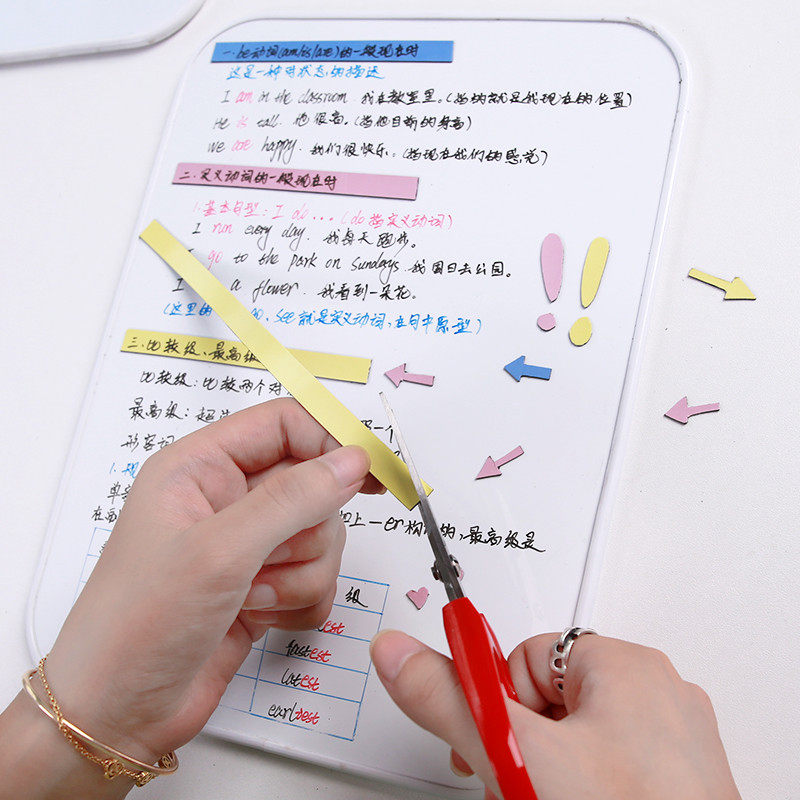 一.be动词(am/is/are)的一般现在时
这是一种对状态的描述
I am in the classroom. 我在教室里。(指的就是我现在的位置)
He is tall. 他很高。(指他目前的身高)
We are happy. 我们很快乐。(指现在我们的感觉)
二.实义动词的一般现在时
1.基本句型:I do...(do指实义动词)
I run every day. 我每天跑步。
I go to the park on Sundays. 我周日去公园。
I a flower. 我看到一朵花。
(这里的 go、see就是实义动词,在句中原型)
三.比较级、最高级
比较级:比较两个对
最高级:超
形容词
1.规
单
在
上-er构 的,最高级是
级
est
fastest
latest
earliest